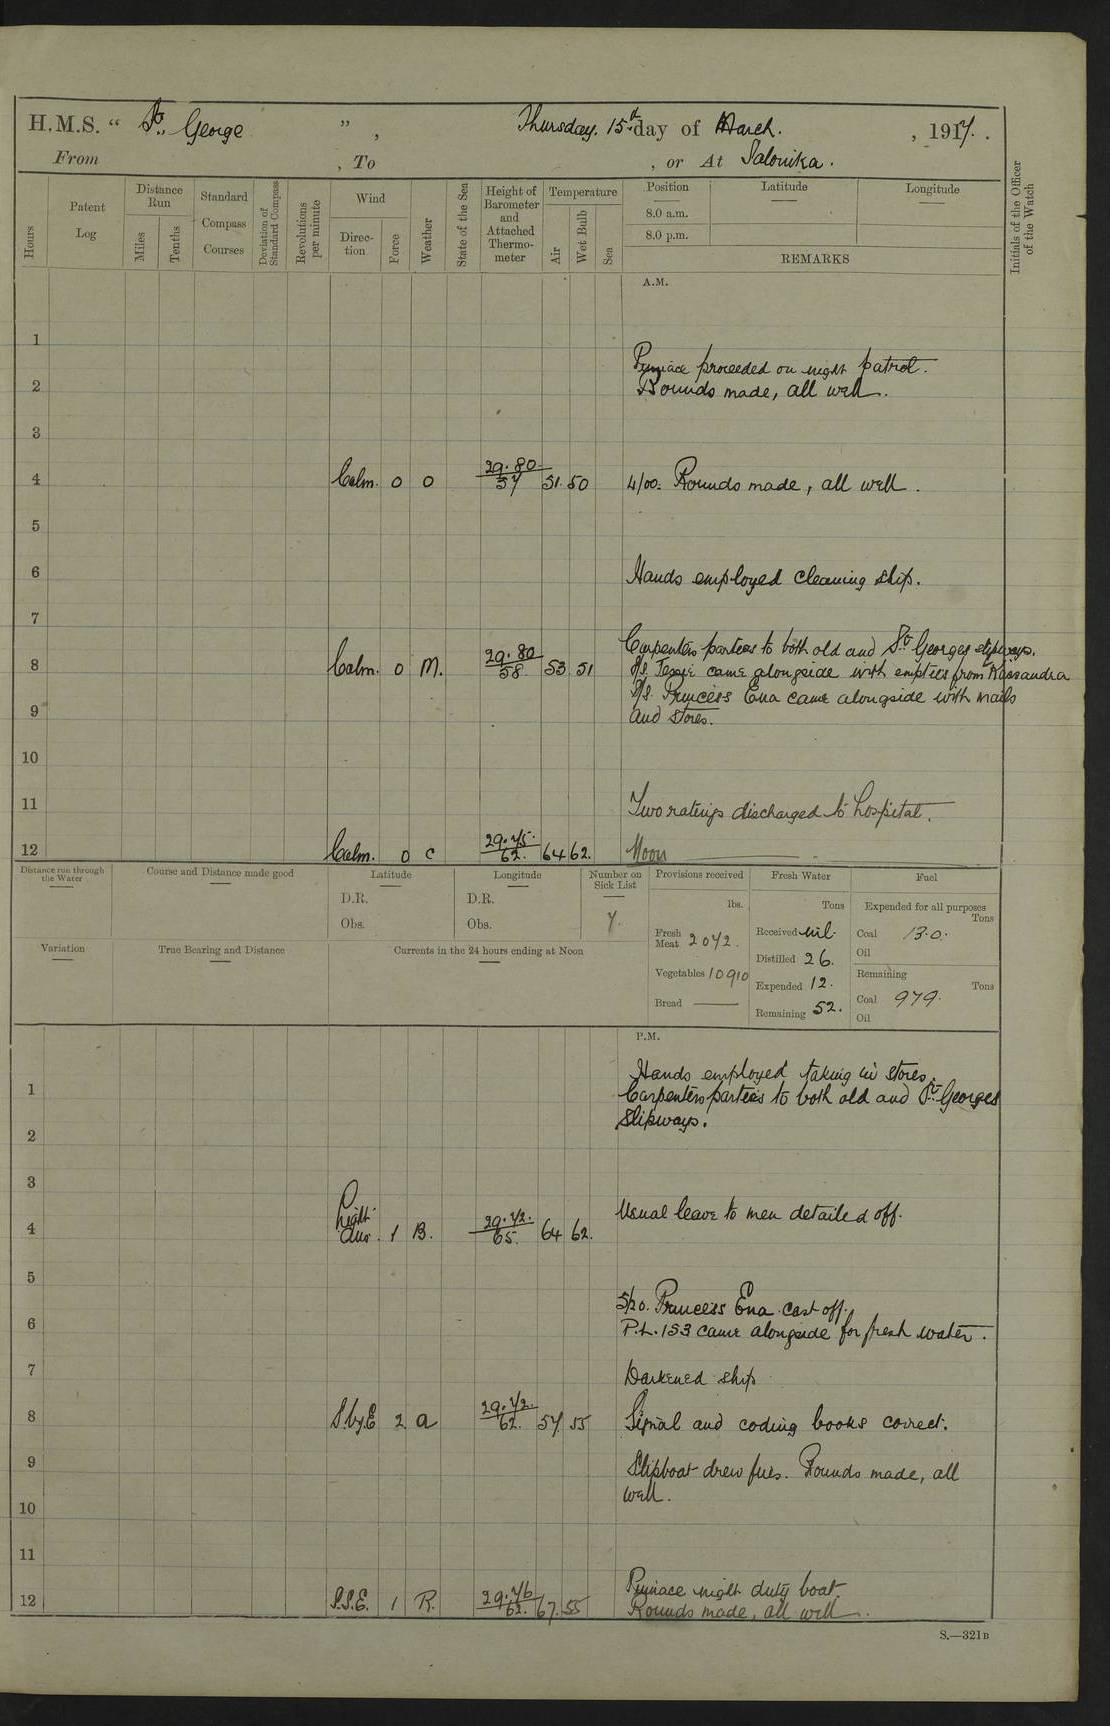 H.M.S. “ St. George ” , Thursday. 15th day of March. , 1917.
From , To , or At Salonika.
Hours
Patent Log
Distance Run
Miles
Tenths
Standard Compass Courses
Deviation of Standard Compass
Revolutions per minute
Wind
Direction
Force
Weather
State of the Sea
Height of Barometer and Attached Thermometer
Temperature
Air
Wet Bulb
Sea
Position Latitude Longitude
8.0 a.m.
8.0 p.m.
REMARKS
Initials of the Officer of the Watch
A.M.
1
Pinnace proceeded on night patrol.
2 Rounds made, all well.
3
4 Calm. 0 0 29.80/57 51 50 4/00. Rounds made, all well.
5
6 Hands employed cleaning ship.
7
Carpenters parties to both old and St. Georges slipways.
8 Calm. 0 M. 29.80/58 53 51 S/S. Tessie came alongside with empties from Kassandra
S/S. Princess Ena came alongside with mails
9 and stores.
10
11 Two ratings discharged to hospital.
12 Calm. 0 C 29.75/62. 64 62. Noon
Distance run through the Water
Course and Distance made good
Latitude
D.R.
Obs.
Longitude
D.R.
Obs.
Number on Sick List
7.
Provisions received
lbs.
Fresh Meat 2072.
Vegetables 10910
Bread
Fresh Water
Tons
Received nil.
Distilled 26.
Expended 12.
Remaining 52.
Fuel
Expended for all purposes
Tons
Coal 13.0.
Oil
Remaining
Tons
Coal 979.
Oil
Variation
True Bearing and Distance
Currents in the 24 hours ending at Noon
P.M.
Hands employed taking in stores.
1 Carpenters parties to both old and St. Georges
Slipways.
2
3
Usual leave to men detailed off.
4 Light airs. 1 B. 29.72./65. 64 62.
5
5/20. Princess Ena cast off.
6 P.L. 153 came alongside for fresh water.
7 Darkened ship
8 S.by.E 2 a 29.72./62. 57 55 Signal and coding books correct.
9 Slipboat drew fires. Rounds made, all
well.
10
11
Pinnace night duty boat.
12 S.S.E. 1 R. 29.76/62. 67. 55 Rounds made, all well.
S.—321B